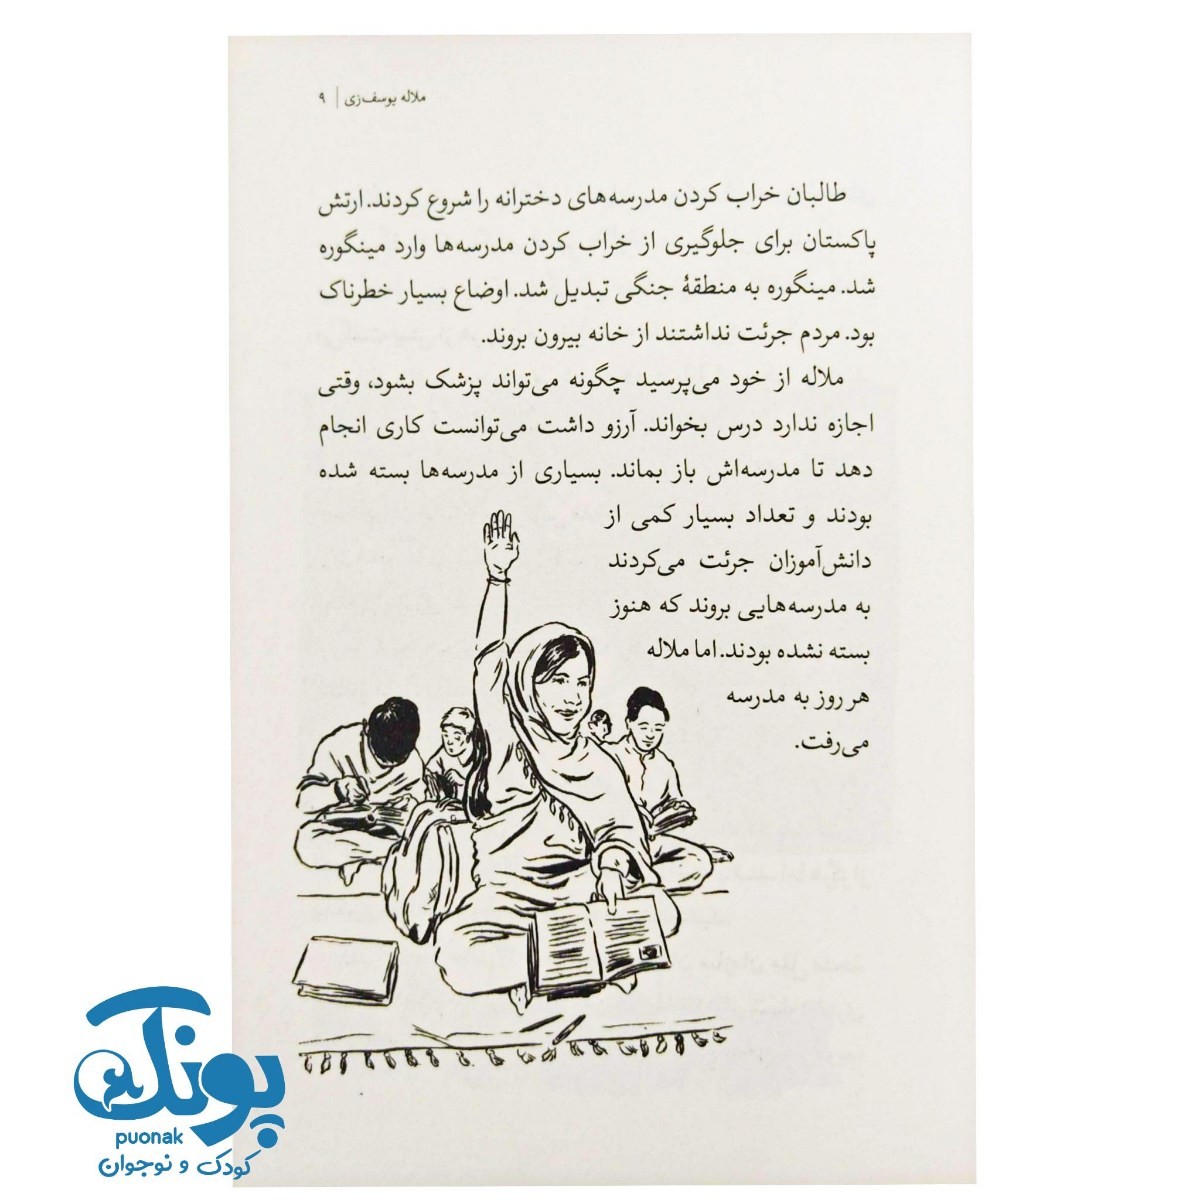 ملاله یوسف‌زی | ۹
طالبان خراب کردن مدرسه‌های دخترانه را شروع کردند. ارتش
پاکستان برای جلوگیری از خراب کردن مدرسه‌ها وارد مینگوره
شد. مینگوره به منطقهٔ جنگی تبدیل شد. اوضاع بسیار خطرناک
بود. مردم جرئت نداشتند از خانه بیرون بروند.
ملاله از خود می‌پرسید چگونه می‌تواند پزشک بشود، وقتی
اجازه ندارد درس بخواند. آرزو داشت می‌توانست کاری انجام
دهد تا مدرسه‌اش باز بماند. بسیاری از مدرسه‌ها بسته شده
بودند و تعداد بسیار کمی از
دانش‌آموزان جرئت می‌کردند
به مدرسه‌هایی بروند که هنوز
بسته نشده بودند. اما ملاله
هر روز به مدرسه
می‌رفت.
پونک
puonak
کودک و نوجوان